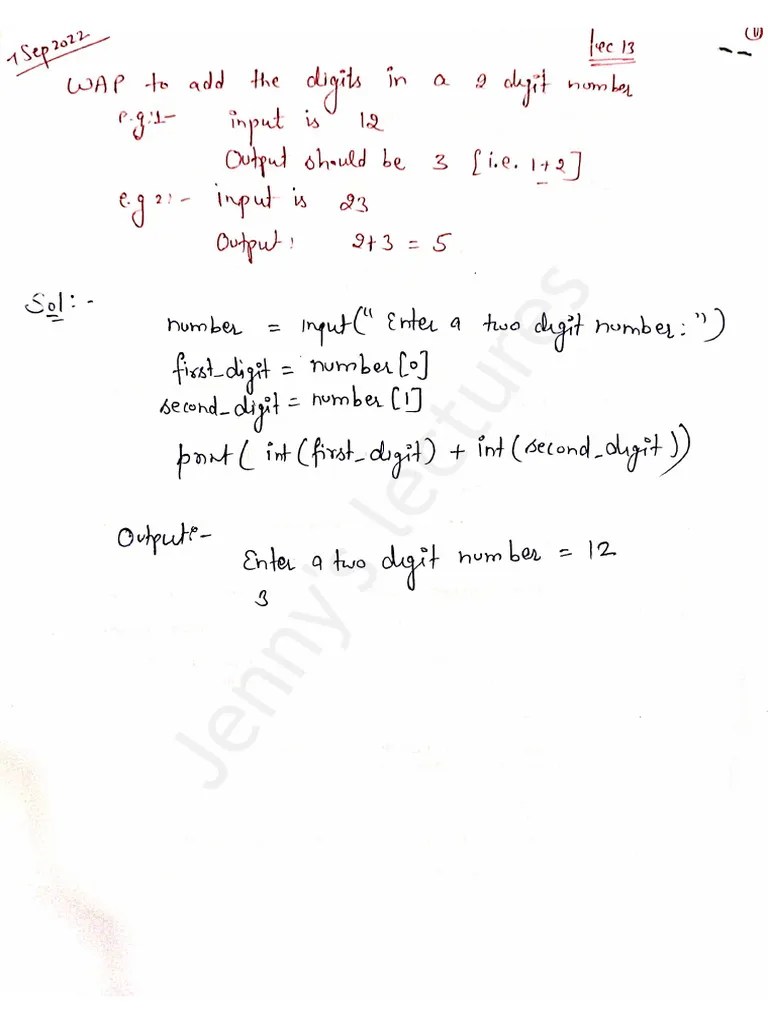 1 Sep 2022
Lec 13
(11)
WAP to add the digits in a 2 digit number
e.g:1- input is 12
Output should be 3 [i.e. 1+2]
e.g 2:- input is 23
Output: 2+3 = 5
Sol:-
number = input("Enter a two digit number:")
first_digit = number[0]
second_digit = number[1]
print(int(first_digit) + int(second_digit))
Output:-
Enter a two digit number = 12
3
Jenny's lectures